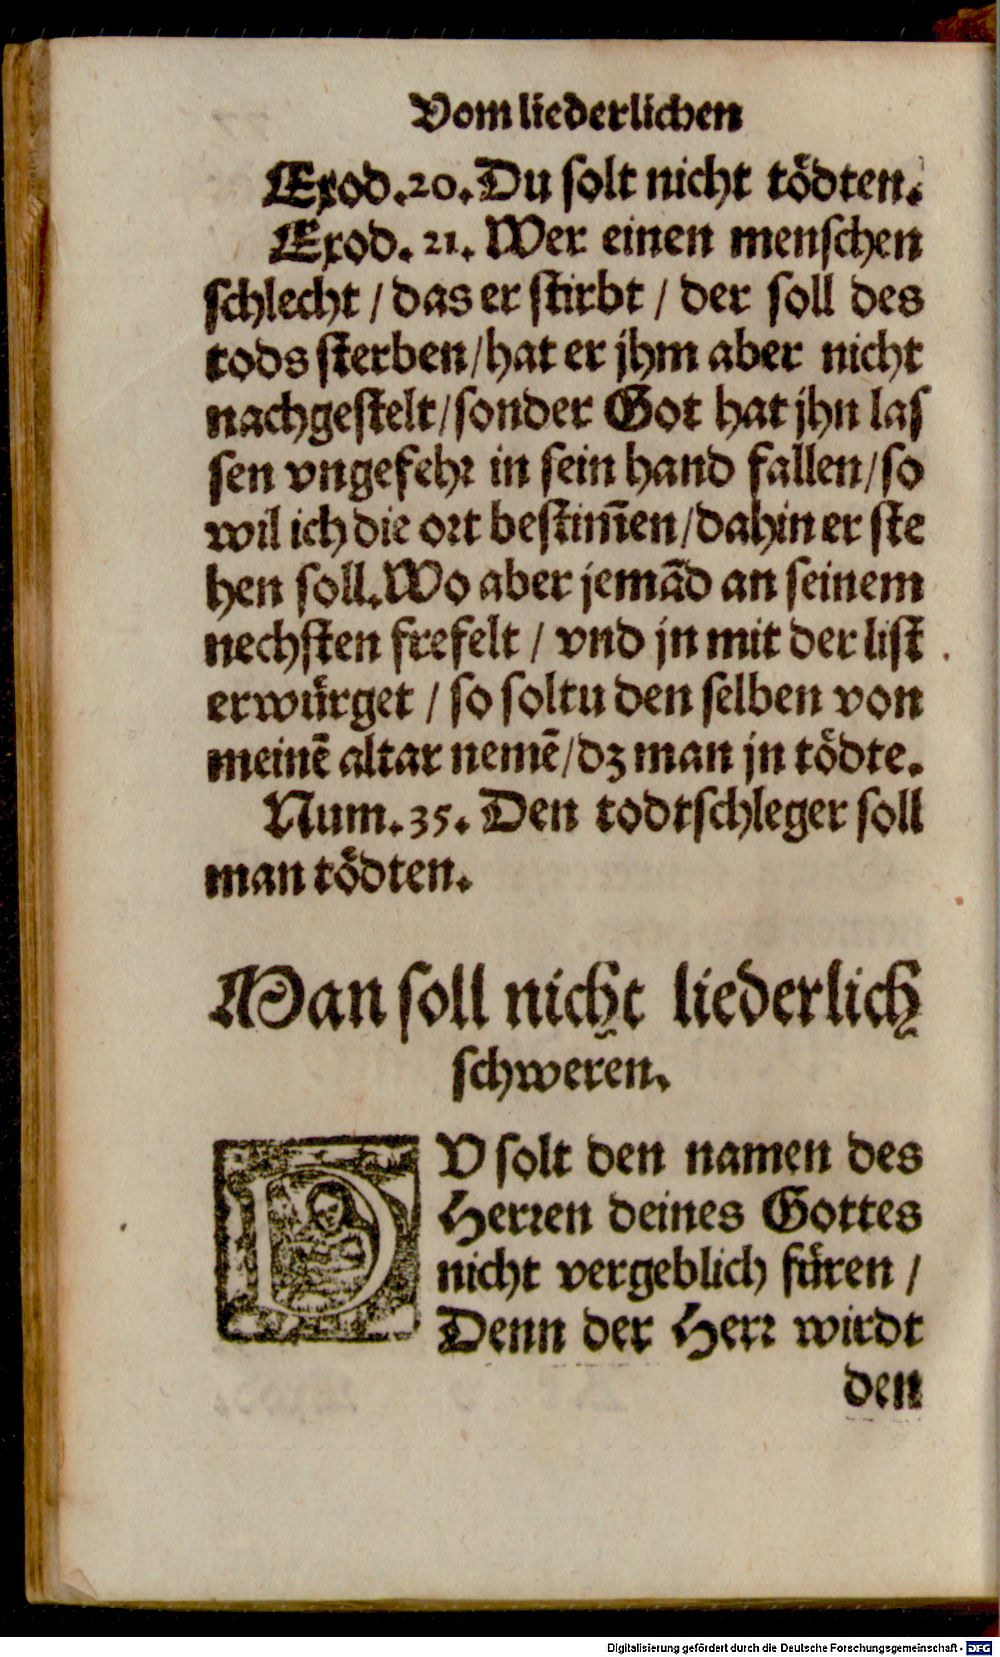 Vom liederlichen
Exod. 20. Du solt nicht tödten.
Exod. 21. Wer einen menschen
schlecht / das er stirbt / der soll des
tods sterben / hat er jhm aber nicht
nachgestelt / sonder Got hat jhn las
sen vngefehr in sein hand fallen / so
wil ich die ort bestim̄en / dahin er ste
hen soll. Wo aber jemād an seinem
nechsten frefelt / vnd jn mit der list
erwürget / so soltu den selben von
meinē altar nemē / dz man jn tödte.
Num. 35. Den todtschleger soll
man tödten.
Man soll nicht liederlich
schweren.
DV solt den namen des
Herren deines Gottes
nicht vergeblich füren /
Denn der Herr wirdt
den
Digitalisierung gefördert durch die Deutsche Forschungsgemeinschaft - DFG